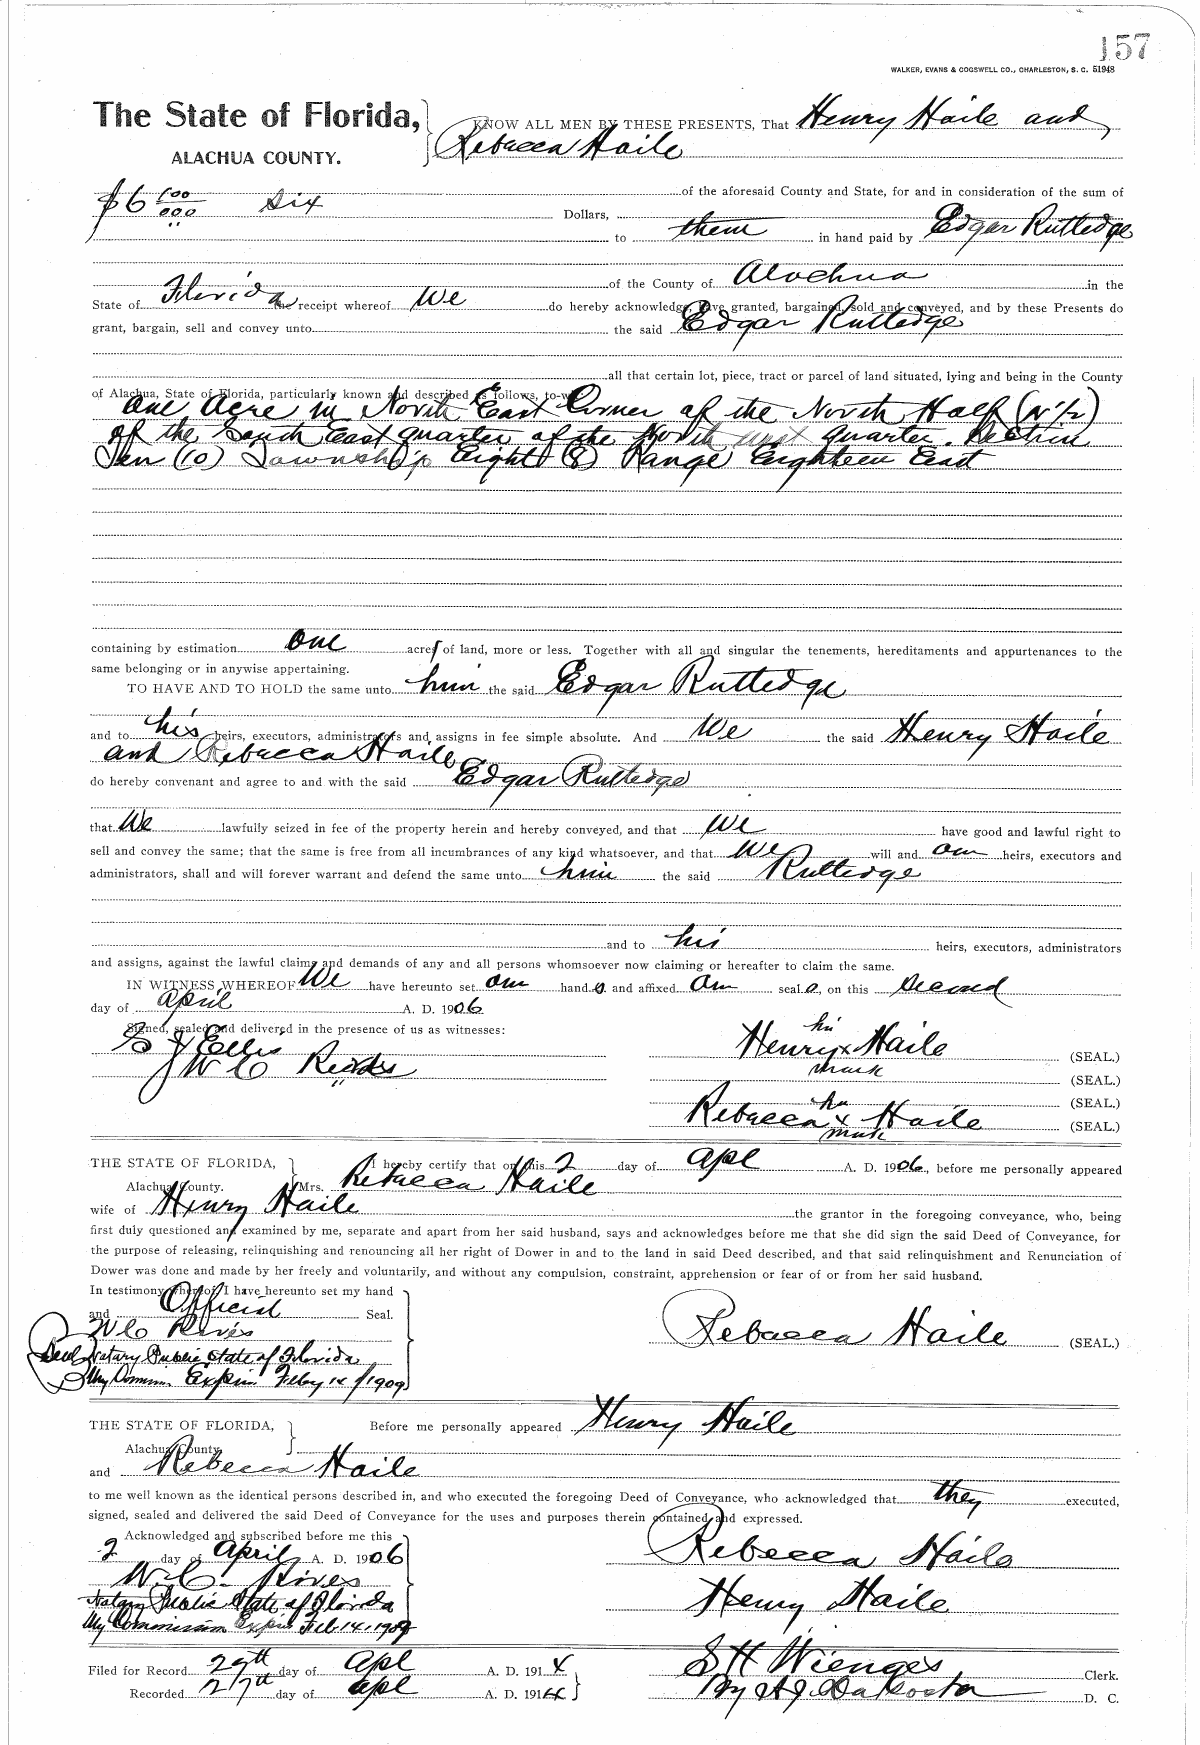 157
WALKER, EVANS & COGSWELL CO., CHARLESTON, S. C. 51948
The State of Florida,
ALACHUA COUNTY.
KNOW ALL MEN BY THESE PRESENTS, That Henry Haile and
Rebacca Haile
of the aforesaid County and State, for and in consideration of the sum of
$6 Six Dollars,
to them in hand paid by Edgar Rutledge
of the County of Alachua in the
State of Florida the receipt whereof We do hereby acknowledge, have granted, bargained, sold and conveyed, and by these Presents do
grant, bargain, sell and convey unto the said Edgar Rutledge
all that certain lot, piece, tract or parcel of land situated, lying and being in the County
of Alachua, State of Florida, particularly known and described as follows, to-wit:
One Acre in North East Corner of the North Half (N 1/2)
of the South East quarter of the North west quarter. Section
Ten (10) Township Eight (8) Range Eighteen East
containing by estimation one acre of land, more or less. Together with all and singular the tenements, hereditaments and appurtenances to the
same belonging or in anywise appertaining.
TO HAVE AND TO HOLD the same unto him the said Edgar Rutledge
and to his heirs, executors, administrators and assigns in fee simple absolute. And We the said Henry Haile
and Rebacca Haile
do hereby convenant and agree to and with the said Edgar Rutledge
that We lawfully seized in fee of the property herein and hereby conveyed, and that We have good and lawful right to
sell and convey the same; that the same is free from all incumbrances of any kind whatsoever, and that We will and our heirs, executors and
administrators, shall and will forever warrant and defend the same unto him the said Rutledge
and to his heirs, executors, administrators
and assigns, against the lawful claims and demands of any and all persons whomsoever now claiming or hereafter to claim the same.
IN WITNESS WHEREOF We have hereunto set our hand s and affixed our seal s, on this Second
day of April A. D. 1906
Signed, sealed and delivered in the presence of us as witnesses:
Ellis
W C Rives
his
Henry x Haile (SEAL.)
mark
(SEAL.)
her (SEAL.)
Rebacca x Haile (SEAL.)
mark
THE STATE OF FLORIDA,
Alachua County.
I hereby certify that on this 2 day of Apl A. D. 1906, before me personally appeared
Mrs. Rebacca Haile
wife of Henry Haile the grantor in the foregoing conveyance, who, being
first duly questioned and examined by me, separate and apart from her said husband, says and acknowledges before me that she did sign the said Deed of Conveyance, for
the purpose of releasing, relinquishing and renouncing all her right of Dower in and to the land in said Deed described, and that said relinquishment and Renunciation of
Dower was done and made by her freely and voluntarily, and without any compulsion, constraint, apprehension or fear of or from her said husband.
In testimony whereof I have hereunto set my hand
and Official Seal.
W C Rives
Seal Notary Public State of Florida
My Commn Expires Feby 14/1909
Rebacca Haile (SEAL.)
THE STATE OF FLORIDA,
Alachua County.
Before me personally appeared Henry Haile
and Rebecca Haile
to me well known as the identical persons described in, and who executed the foregoing Deed of Conveyance, who acknowledged that they executed,
signed, sealed and delivered the said Deed of Conveyance for the uses and purposes therein contained and expressed.
Acknowledged and subscribed before me this
2 day of April A. D. 1906
W. C. Rives
Notary Public State of Florida
My Commission Expires Feb 14, 1909
Rebecca Haile
Henry Haile
Filed for Record 27th day of Apl A. D. 1914
Recorded 27th day of Apl A. D. 1914
S H Wienges Clerk.
By D. C.